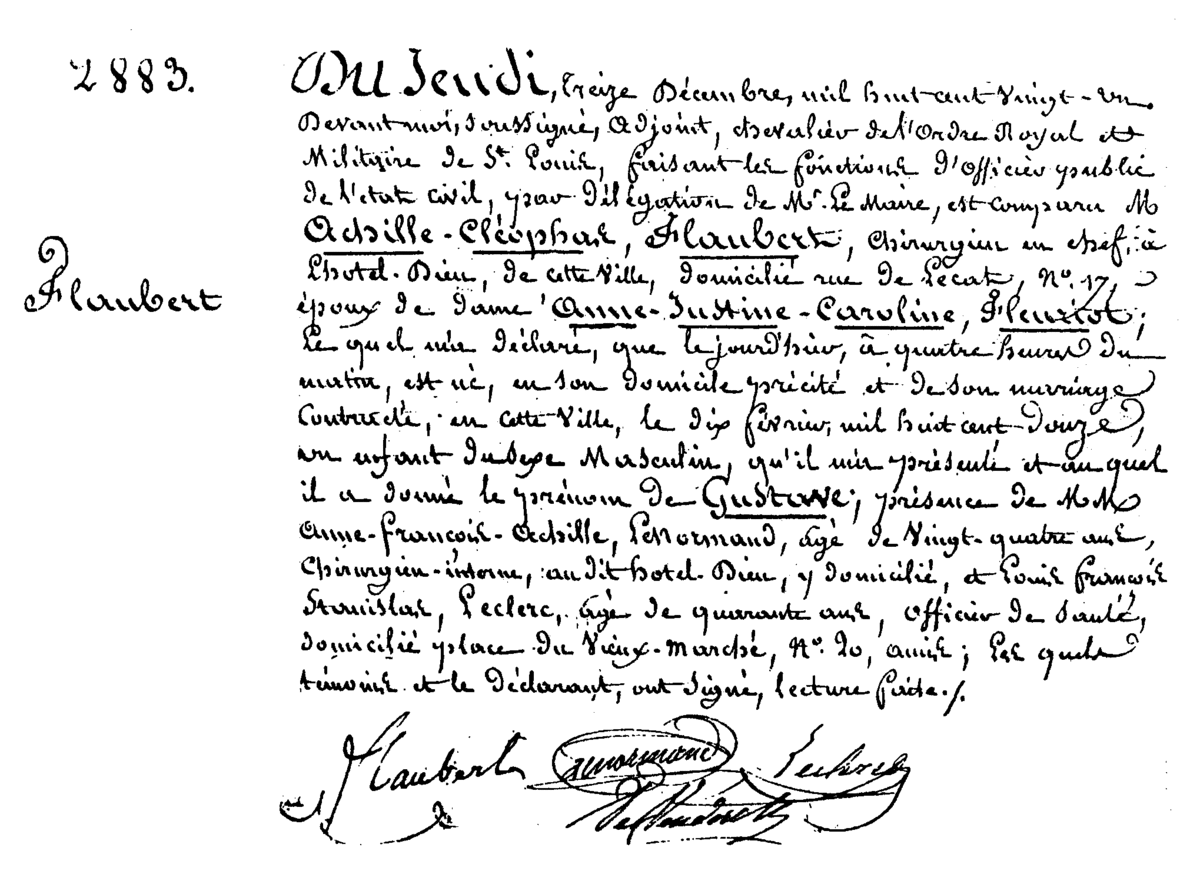 2883.
Du Jeudi, treize Décembre, mil huit cent vingt-un
Devant moi, soussigné, Adjoint, chevalier de l'Ordre Royal et
Militaire de St. Louis, faisant les fonctions d'Officier public
de l'état civil, par délégation de Mr. Le Maire, est comparu M
Achille-Cléophas, Flaubert, chirurgien en chef, à
Flaubert
L'hotel-Dieu, de cette Ville, domicilié rue de Lecat, No. 17,
époux de dame Anne-Justine-Caroline, Fleuriot;
Le quel m'a déclaré, que le jourd'hier, à quatre heures du
matin, est né, en son domicile précité et de son mariage
contracté, en cette Ville, le dix février, mil huit cent-douze,
un enfant du sexe Masculin, qu'il m'a présenté et au quel
il a donné le prénom de Gustave; présence de MM
Anne-françois-Achille, Lenormand, âgé de Vingt-quatre ans,
Chirurgien-interne, au dit hotel-Dieu, y domicilié, et Louis françois
Stanislas, Leclerc, âgé de quarante ans, officier de Santé,
domicilié place du Vieux-Marché, No. 20, amis; Les quels
témoins et le déclarant, ont signé, lecture faite./.
Flaubert Lenormand Leclerc